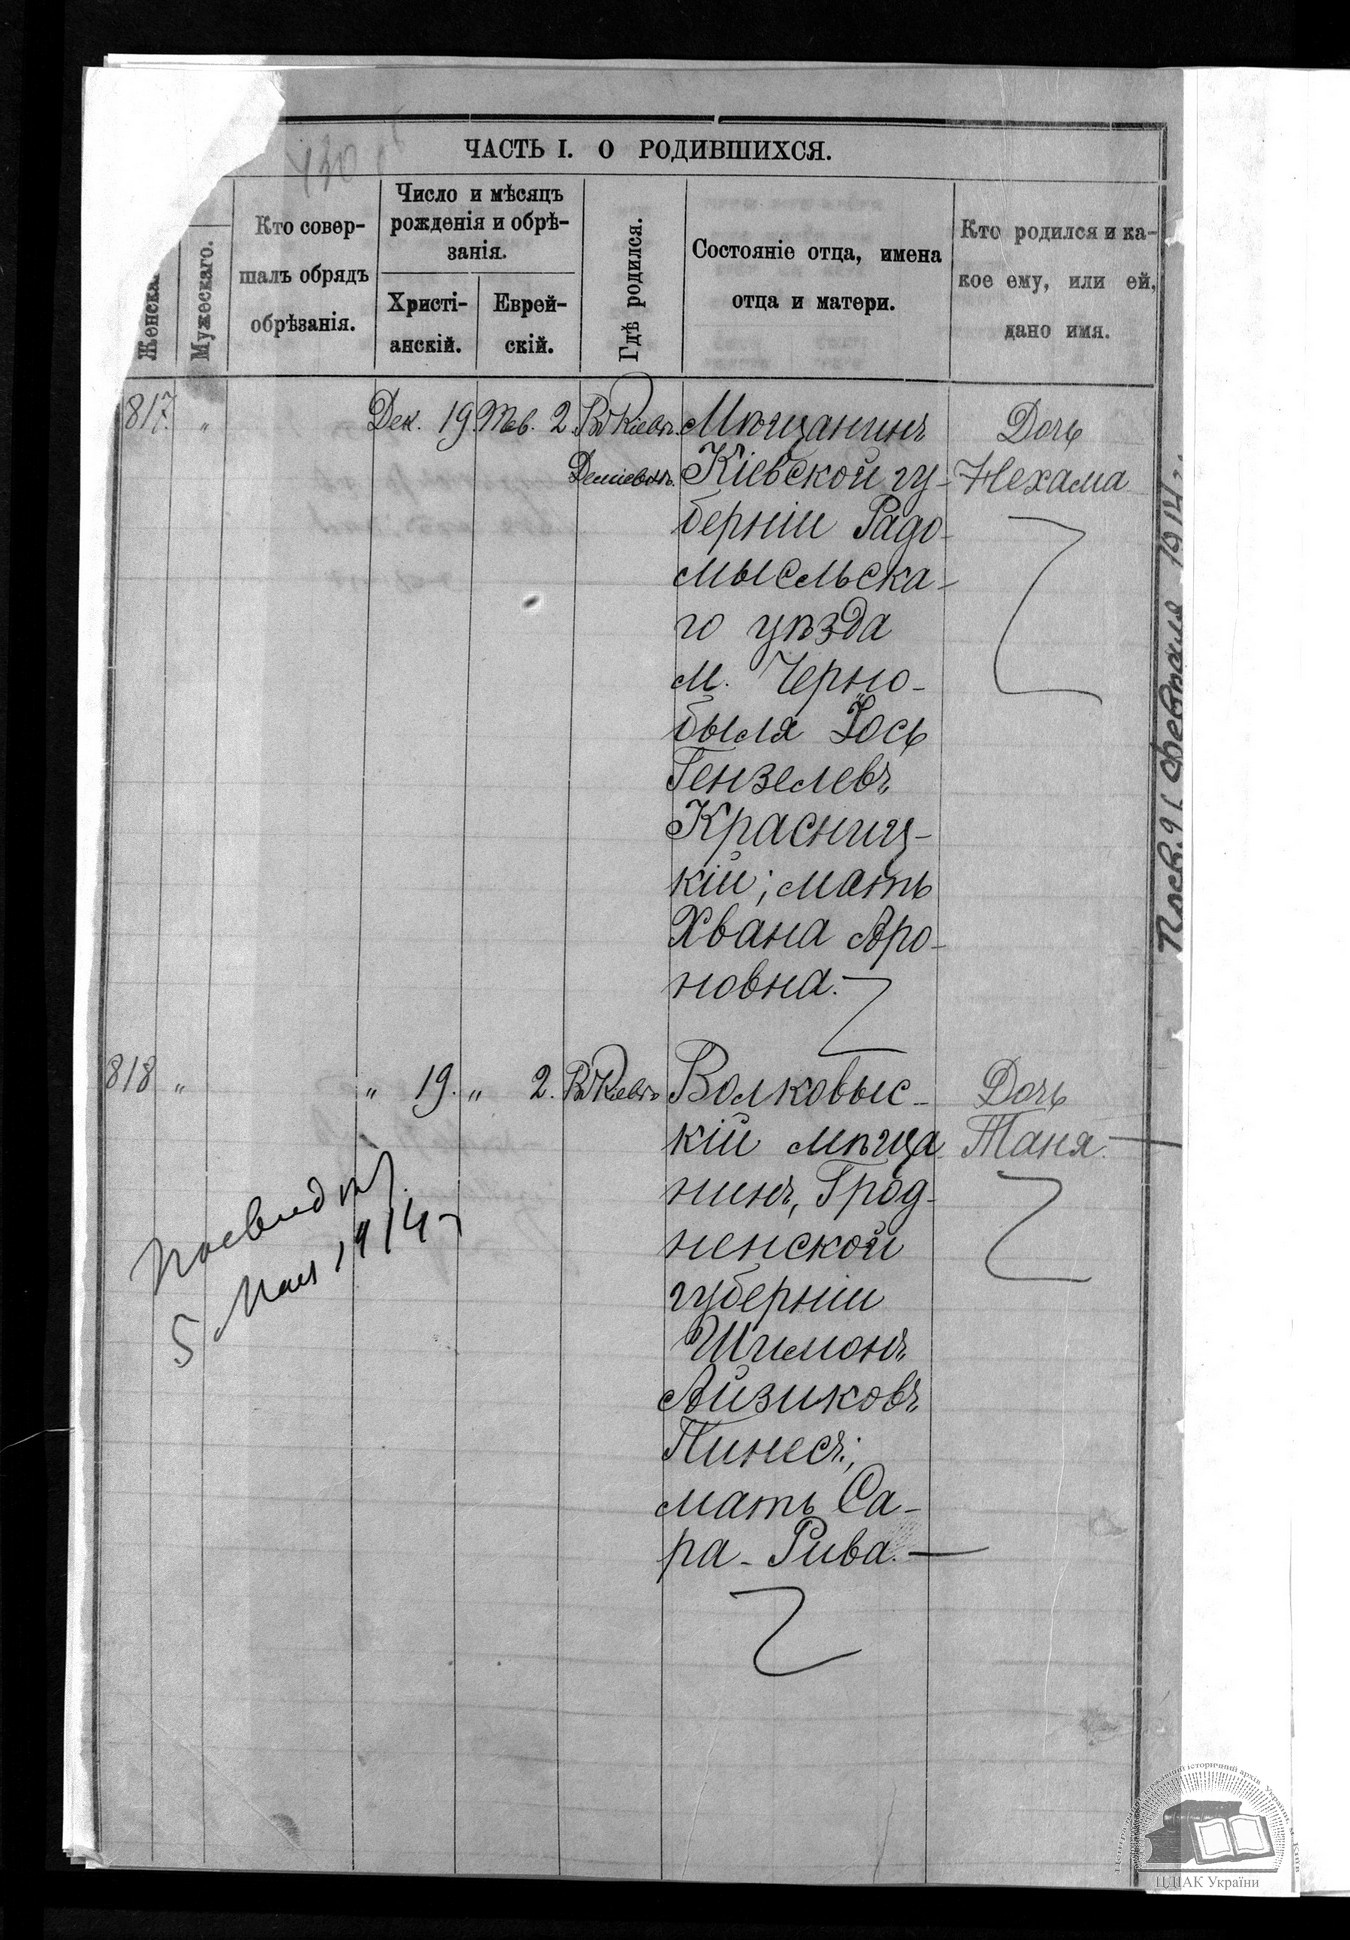 ЧАСТЬ I. О РОДИВШИХСЯ.
Женска
Мужескаго.
Кто совер-
шалъ обрядъ
обрѣзанія.
Число и мѣсяцъ
рожденія и обрѣ-
занія.
Христі-
анскій.
Еврей-
скій.
Гдѣ родился.
Состояніе отца, имена
отца и матери.
Кто родился и ка-
кое ему, или ей,
дано имя.
817. " Дек. 19. Тев. 2. Въ Кіевѣ.
Деміевкѣ.
Мѣщанинъ
Кіевской гу-
берніи Радо-
мысльска-
го уѣзда
м. Черно-
быля Іось
Гензелевъ
Красниц-
кій; мать
Хвана Аро-
новна.
Дочь
Нехама
818 " " 19. " 2. Въ Кіевѣ
Волковыс-
кій мѣща
нинъ, Грод-
ненской
губерніи
Шимонъ
Айзиковъ
Пинесъ;
мать Са-
ра-Рива.
Дочь
Таня.
5 Мая 1914 г
февраля 1914 г.
ЦДІАК України